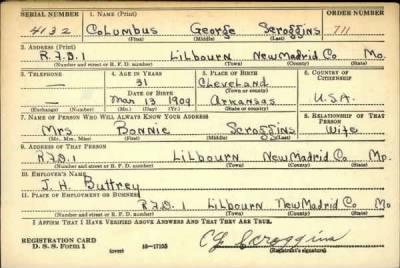 SERIAL NUMBER 1. NAME (Print) ORDER NUMBER
4132 Columbus George Scroggins 711
(First) (Middle) (Last)
2. ADDRESS (Print)
R.F.D.1 Lilbourn New Madrid Co Mo.
(Number and street or R. F. D. number) (Town) (County) (State)
3. TELEPHONE 4. AGE IN YEARS 5. PLACE OF BIRTH 6. COUNTRY OF CITIZENSHIP
— 31 Cleveland
DATE OF BIRTH (Town or county)
— Mar 13 1909 Arkansas U.S.A.
(Exchange) (Number) (Mo.) (Day) (Yr.) (State or country)
7. NAME OF PERSON WHO WILL ALWAYS KNOW YOUR ADDRESS 8. RELATIONSHIP OF THAT PERSON
Mrs Bonnie Scroggins Wife
(Mr., Mrs., Miss) (First) (Middle) (Last)
9. ADDRESS OF THAT PERSON
R.F.D.1 Lilbourn New Madrid Co Mo.
(Number and street or R. F. D. number) (Town) (County) (State)
10. EMPLOYER'S NAME
J. H. Buttrey
11. PLACE OF EMPLOYMENT OR BUSINESS
R.F.D.1 Lilbourn New Madrid Co Mo
(Number and street or R. F. D. number) (Town) (County) (State)
I AFFIRM THAT I HAVE VERIFIED ABOVE ANSWERS AND THAT THEY ARE TRUE.
REGISTRATION CARD
D. S. S. Form 1 (over) 16—17105 C G Scroggins
(Registrant's signature)